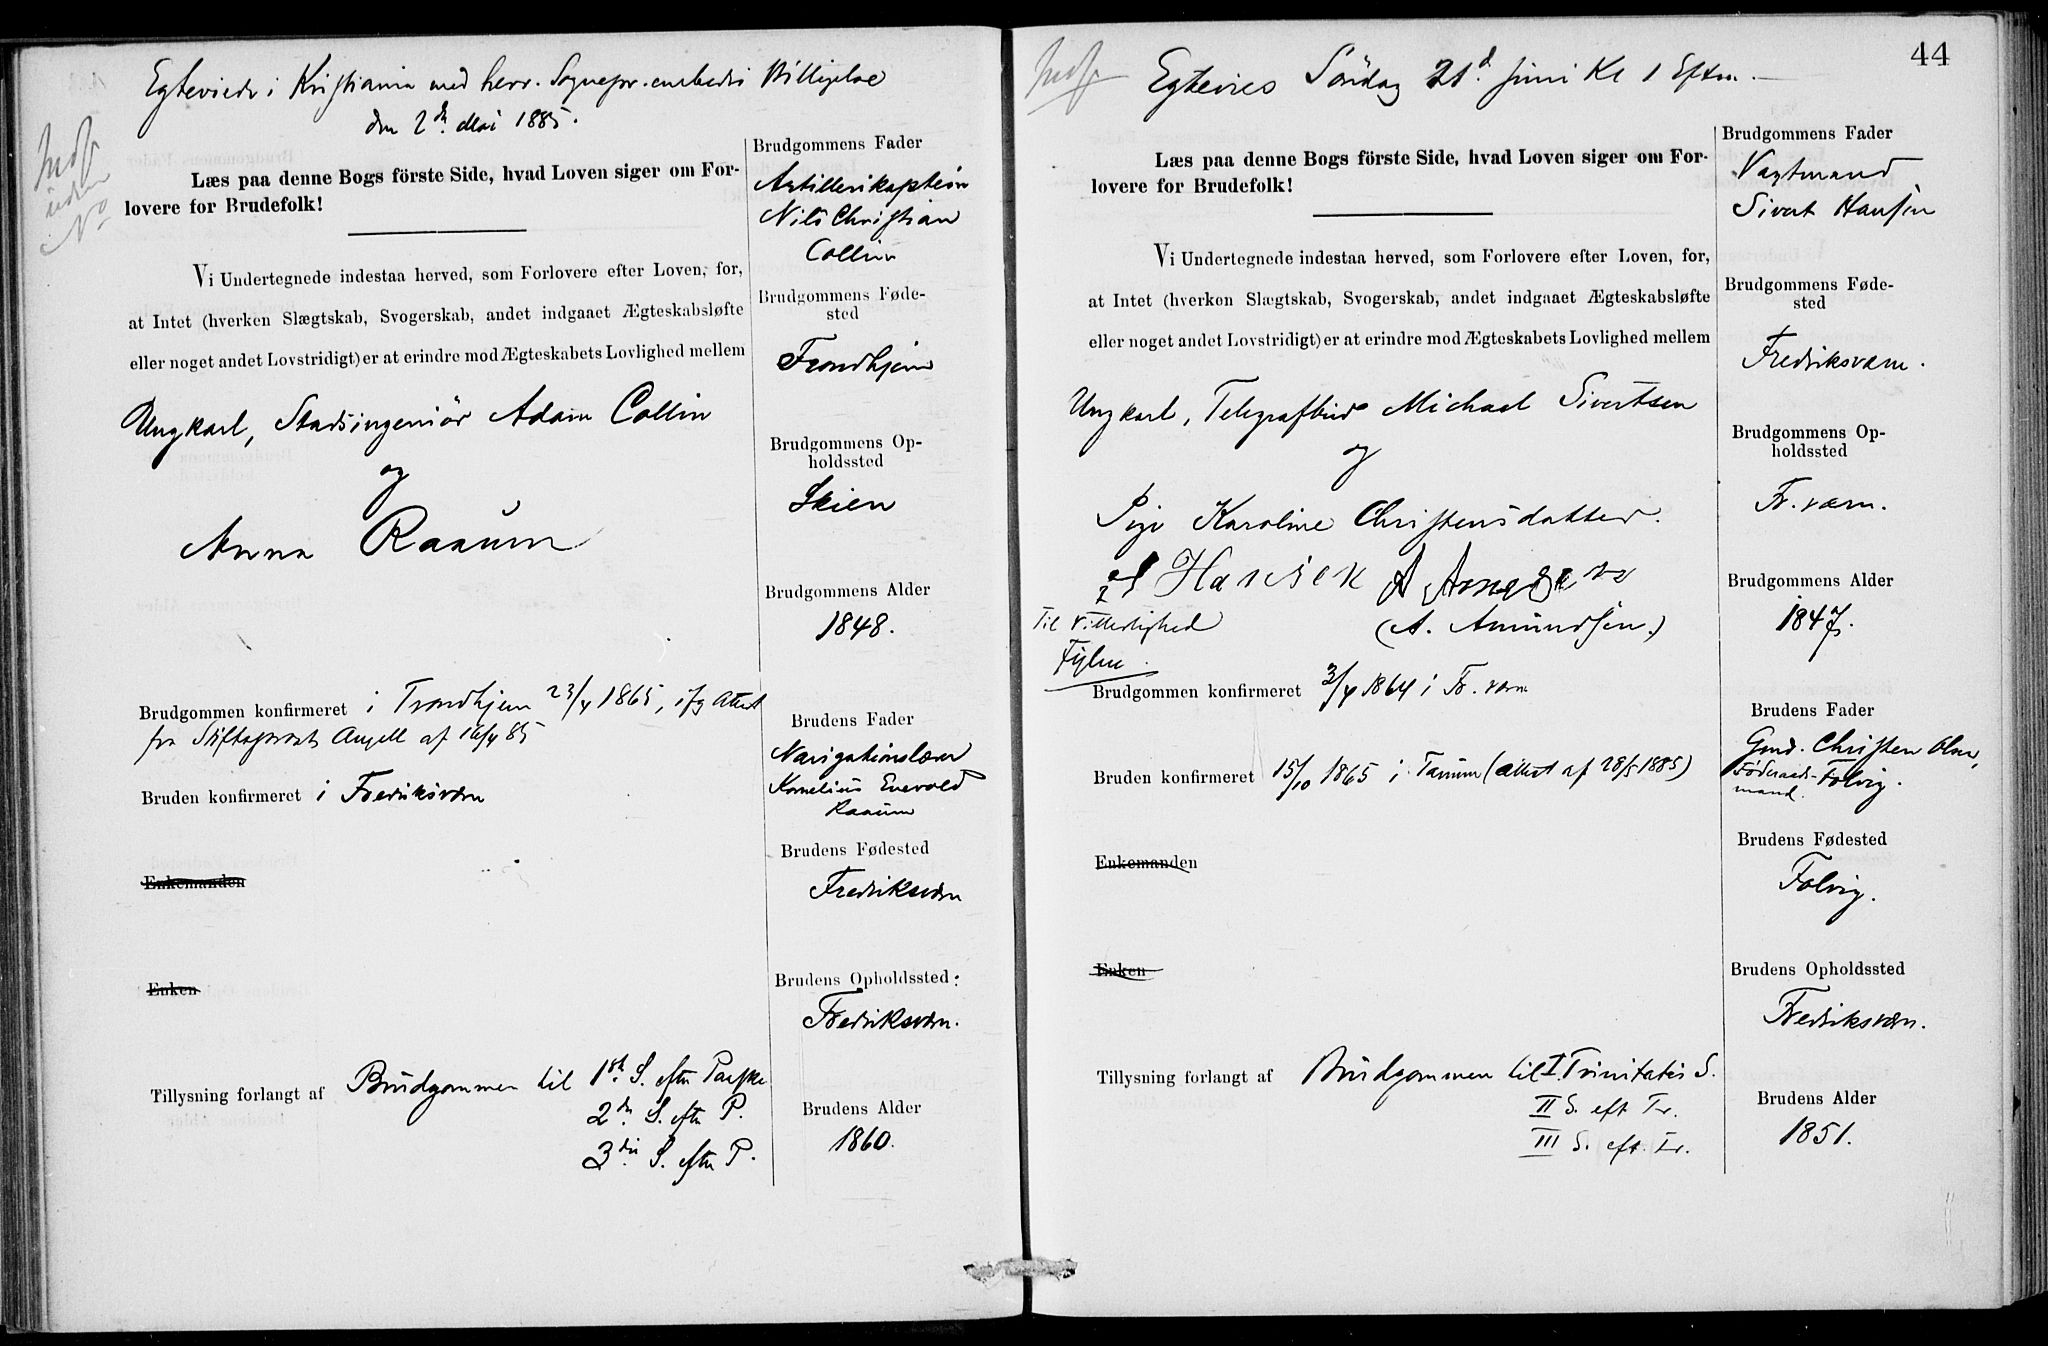 Egtevieds i Kristiania med herv. Sognepr.embeds Billigelse
den 2den Mai 1885.
Indf
uden
No
Læs paa denne Bogs förste Side, hvad Loven siger om For-
lovere for Brudefolk!
Vi Undertegnede indestaa herved, som Forlovere efter Loven, for,
at Intet (hverken Slægtskab, Svogerskab, andet indgaaet Ægteskabsløfte
eller noget andet Lovstridigt) er at erindre mod Ægteskabets Lovlighed mellem
Ungkarl, Stadsingeniör Adam Collin
og
Anna Raaum
Brudgommen konfirmeret i Trondhjem 23/4 1865, ifg Attest
fra Stiftsprovst Angell af 16/4 85
Bruden konfirmeret i Fredriksværn
Enkemanden
Enken
Tillysning forlangt af Brudgommen til 1ste S. efter Paaske
2den S. efter P.
3die S. efter P.
Brudgommens Fader
Artillerikaptein
Nils Christian
Collin
Brudgommens Føde-
sted
Trondhjem
Brudgommens Op-
holdssted
Skien
Brudgommens Alder
1848.
Brudens Fader
Navigationslærer
Kornelius Enevold
Raaum
Brudens Fødested
Fredriksværn
Brudens Opholdssted:
Fredriksværn.
Brudens Alder
1860.
44
Indf
Egtevies Söndag 21d Juni Kl 1 Efterm.
Læs paa denne Bogs förste Side, hvad Loven siger om For-
lovere for Brudefolk!
Vi Undertegnede indestaa herved, som Forlovere efter Loven, for,
at Intet (hverken Slægtskab, Svogerskab, andet indgaaet Ægteskabsløfte
eller noget andet Lovstridigt) er at erindre mod Ægteskabets Lovlighed mellem
Ungkarl, Telegrafbud Michael Sivertsen
og
Pige Karoline Christensdatter.
Hansen A
Til Vitterlighed (A. Amundsen.)
Brudgommen konfirmeret 3/4 1864 i Fr.værn
Bruden konfirmeret 15/10 1865 i Tanum (Attest af 28/5 1885)
Enkemanden
Enken
Tillysning forlangt af Brudgommen til I Trinitatis S.
II S. eft Tr.
III S. eft. Tr.
Brudgommens Fader
Vagtmand
Sivert Hansen
Brudgommens Føde-
sted
Fredriksværn.
Brudgommens Op-
holdssted
Fr.værn.
Brudgommens Alder
1847.
Brudens Fader
Gmd. Christen Olsen,
Föderaads- Folvig.
mand.
Brudens Fødested
Folvig.
Brudens Opholdssted
Fredriksværn.
Brudens Alder
1851.